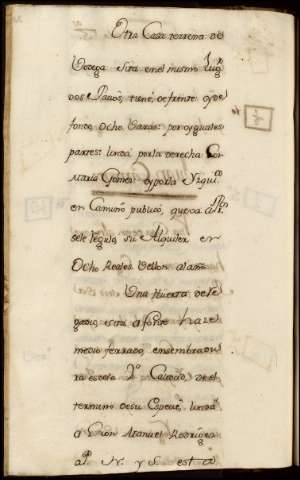 Otra Casa terrena de
Vodega sita en el mismo Lugr
dos Pazos, tiene de frente y de
fondo Ocho Varas: por yguales
partes: linda por la derecha Con
Maria Gomez y por la Yzquida
en Camino publico, que va a
sele regula su Alquiler en
Ocho Reales Vellon al año
Una Huerta de re
gadio esta a fonte haze
medio ferrado, en sembradu
ra es de la Calidad de el
termino de su Especie, linda
a Simon Manuel Rodriguez
al N. y S. est a